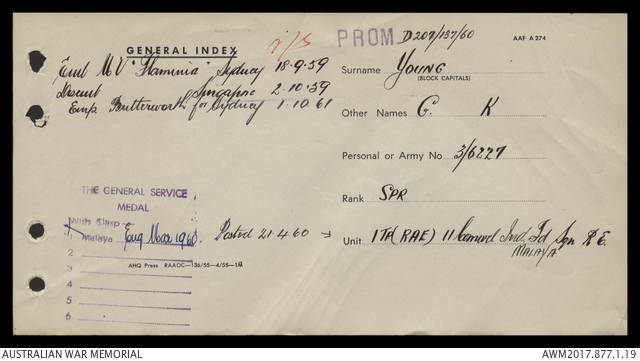 GENERAL INDEX
r/s
PROM D207/157/60
AAF A 274
Emb MV "Flaminia" Sydney 18-9-59
Disemb Singapore 2-10-59
Emp. Butterworth for Sydney 1-10-61
Surname YOUNG
(BLOCK CAPITALS)
Other Names G. K
Personal or Army No 3/6227
Rank SPR
Unit 1 TP (RAE) 11 Fd Sqn R.E.
MALAYA
THE GENERAL SERVICE
MEDAL
With Clasp
1 Malaya 1960. Posted 21.4.60 →
2
3
4
5
6
AHQ Press RAAOC—136/55—4/55—1M
AUSTRALIAN WAR MEMORIAL
AWM2017.877.1.19